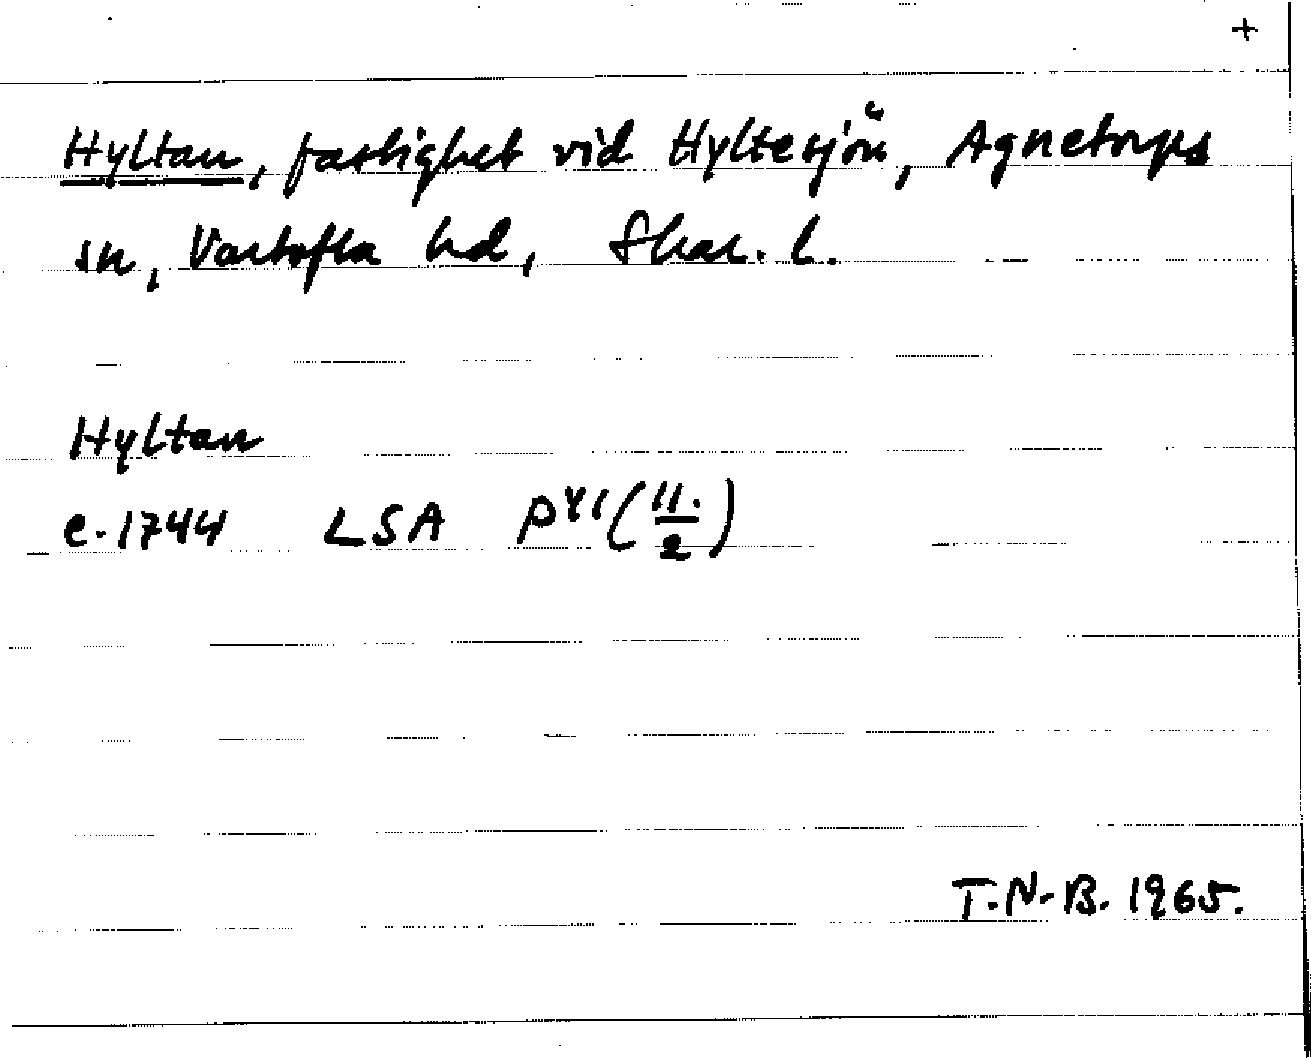 +
Hyltan, fastighet vid Hyltesjön, Agnetorps
sn, Vartofta hd, Skar. l.
Hyltan
e. 1744 LSA P41 (11./2)
T.N.B. 1965.